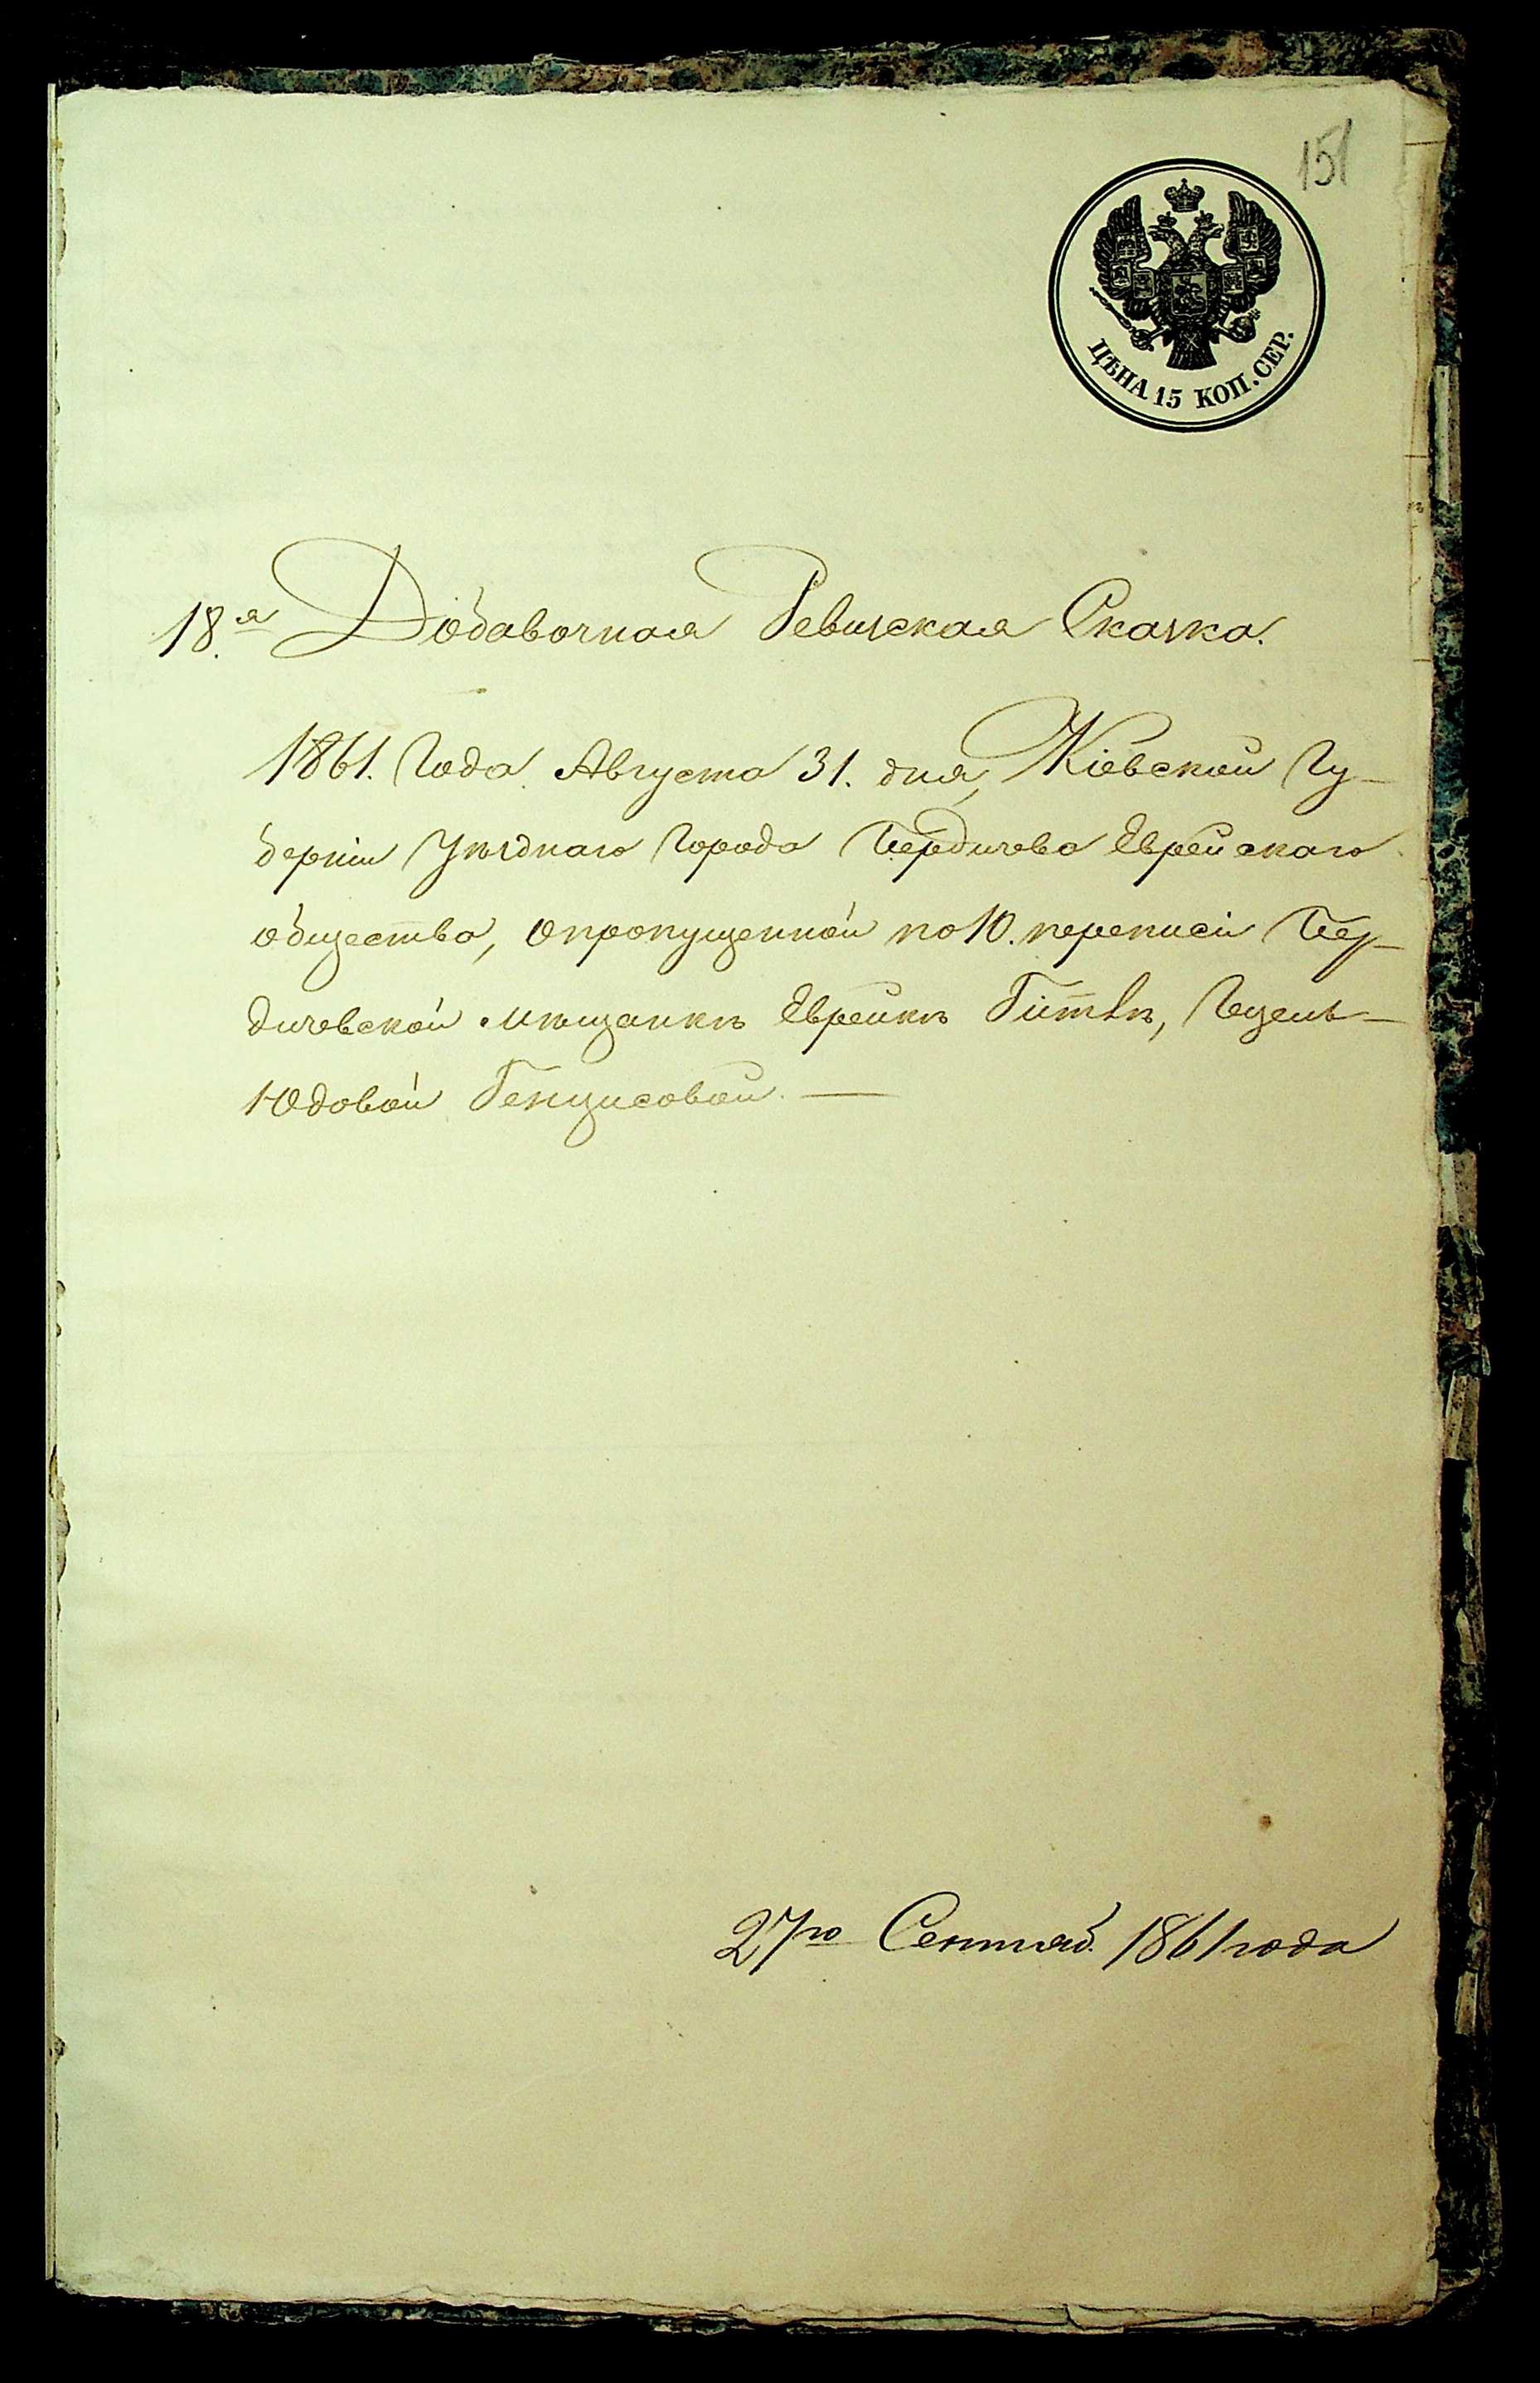 151
ЦѢНА 15 КОП. СЕР.
18.я Добавочная Ревизская Сказка.
1861. Года Августа 31. дня, Кіевской Гу-
берніи Уѣзднаго Города Бердичева Еврейскаго
общества, о пропущенной по 10. переписи Бер-
дичевской мѣщанкѣ Еврейкѣ Гитлѣ,
Юдовой
27го Сентяб. 1861 года